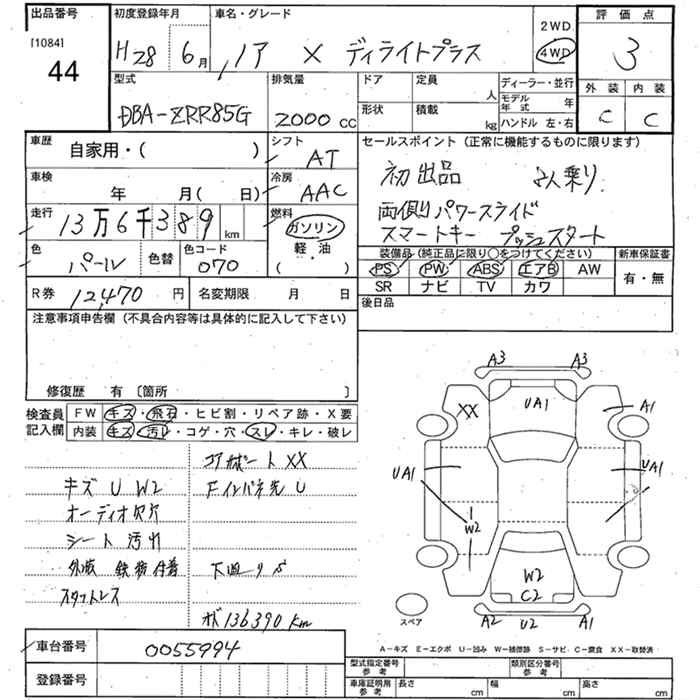 出品番号
[1084]
44
初度登録年月
H28 6月
車名・グレード
ノア X ディライトプラス
2WD
4WD
評価点
3
外装 内装
C C
型式
DBA-ZRR85G
排気量
2000 CC
ドア
定員
人
形状
積載
kg
ディーラー・並行
モデル年式 年
ハンドル 左・右
車歴
自家用・( )
シフト
AT
車検
年 月( 日)
冷房
AAC
走行
13万6千389 km
燃料
ガソリン
軽・油
( )
色
パール
色替
色コード
070
セールスポイント(正常に機能するものに限ります)
初出品 2人乗り
両側パワースライド
スマートキー プッシュスタート
装備品(純正品に限り○をつけてください)
新車保証書
PS PW ABS エアB AW
SR ナビ TV カワ
有・無
R券 12,470 円
名変期限 月 日
後日品
注意事項申告欄(不具合内容等は具体的に記入して下さい)
修復歴 有 〔箇所 〕
検査員記入欄
FW キズ・飛石・ヒビ割・リペア跡・X要
内装 キズ・汚レ・コゲ・穴・スレ・キレ・破レ
コアサポート XX
キズ U W2
Fインパネ先 U
オーディオ欠穴
シート 汚れ
外減 鉄粉付着
下廻りS
スタットレス
136390km
A3 A3
UA1
XX
A1
UA1
UA1
W2
W2
C2
A2 U2 A1
スペア
A-キズ E-エクボ U-凹み W-補修跡 S-サビ C-腐食 XX-取替済
車台番号
0055994
登録番号
型式指定番号 参考
類別区分番号 参考
車庫証明用 参考
長さ cm
幅 cm
高さ cm